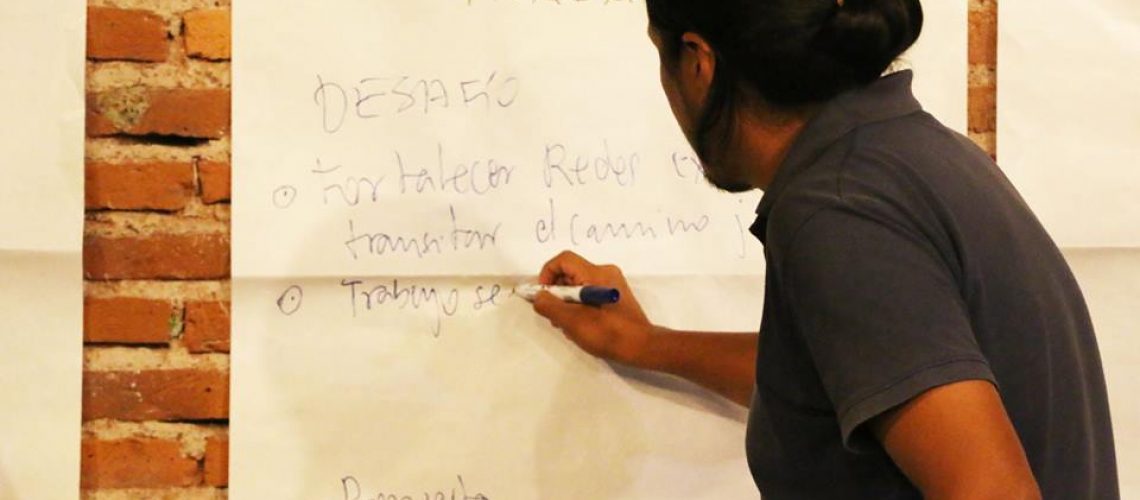 DESAFÍO
Fortalecer Redes
transitar el camino j
Trabajo se
Propuesta